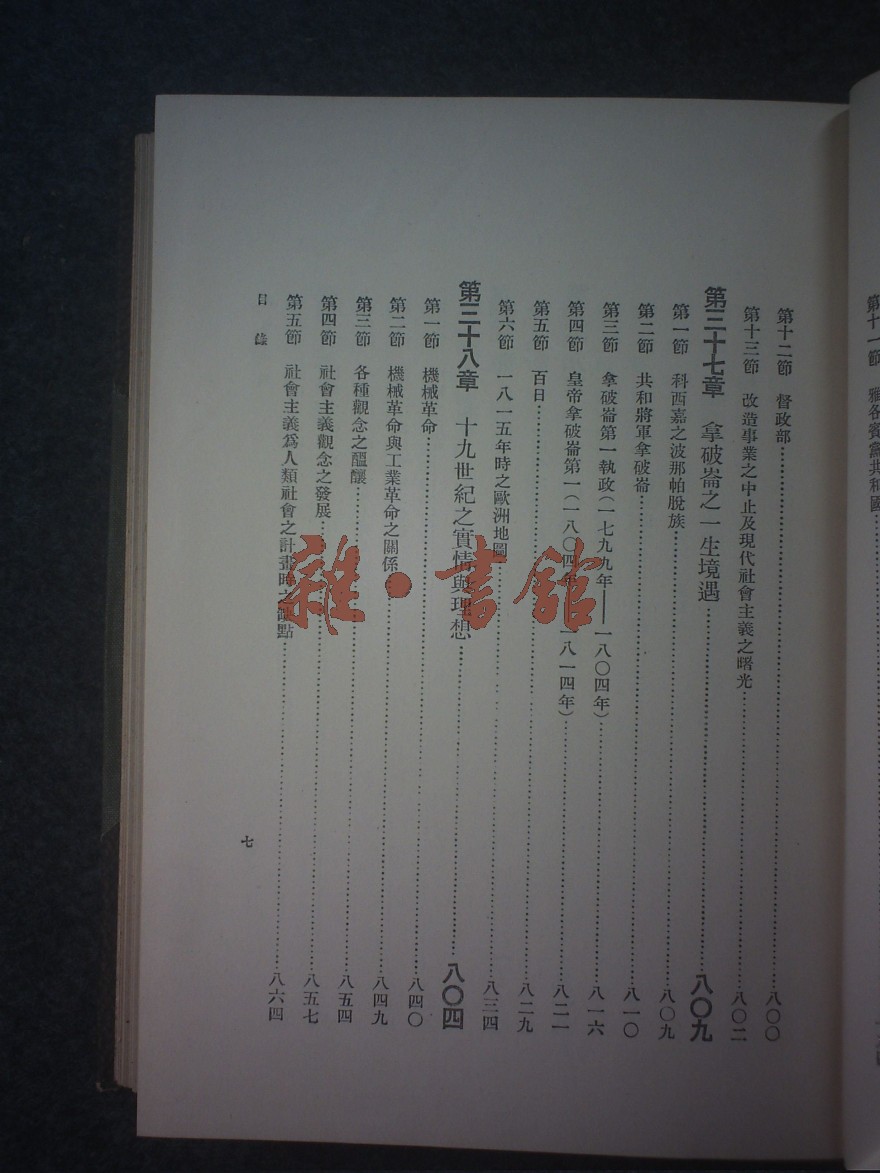 第十一節　雅各賓黨共和國
第十二節　督政部……八〇〇
第十三節　改造事業之中止及現代社會主義之曙光……八〇二
第三十七章　拿破崙之一生境遇……八〇九
第一節　科西嘉之波那帕脫族……八〇九
第二節　共和將軍拿破崙……八一〇
第三節　拿破崙第一執政(一七九九年——一八〇四年)……八一六
第四節　皇帝拿破崙第一(一八〇四年——一八一四年)……八二一
第五節　百日……八二九
第六節　一八一五年時之歐洲地圖……八三四
第三十八章　十九世紀之實情與理想……八〇四
第一節　機械革命……八四〇
第二節　機械革命與工業革命之關係……八四九
第三節　各種觀念之醞釀……八五四
第四節　社會主義觀念之發展……八五七
第五節　社會主義爲人類社會之計畫時之缺點……八六四
目錄
七
雜·書館